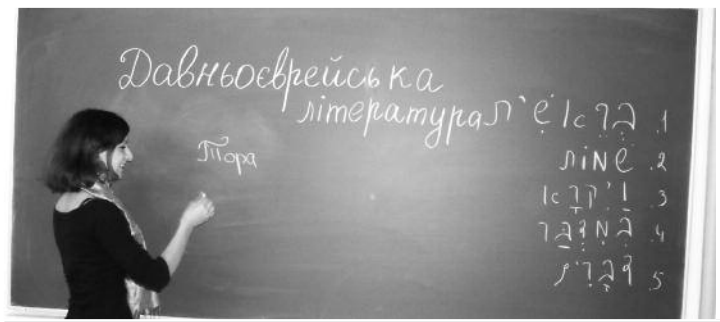 Давньоєврейська
література
Тора
1. בְּרֵאשִׁית
2. שְׁמוֹת
3. וַיִּקְרָא
4. בְּמִדְבַּר
5. דְּבָרִים